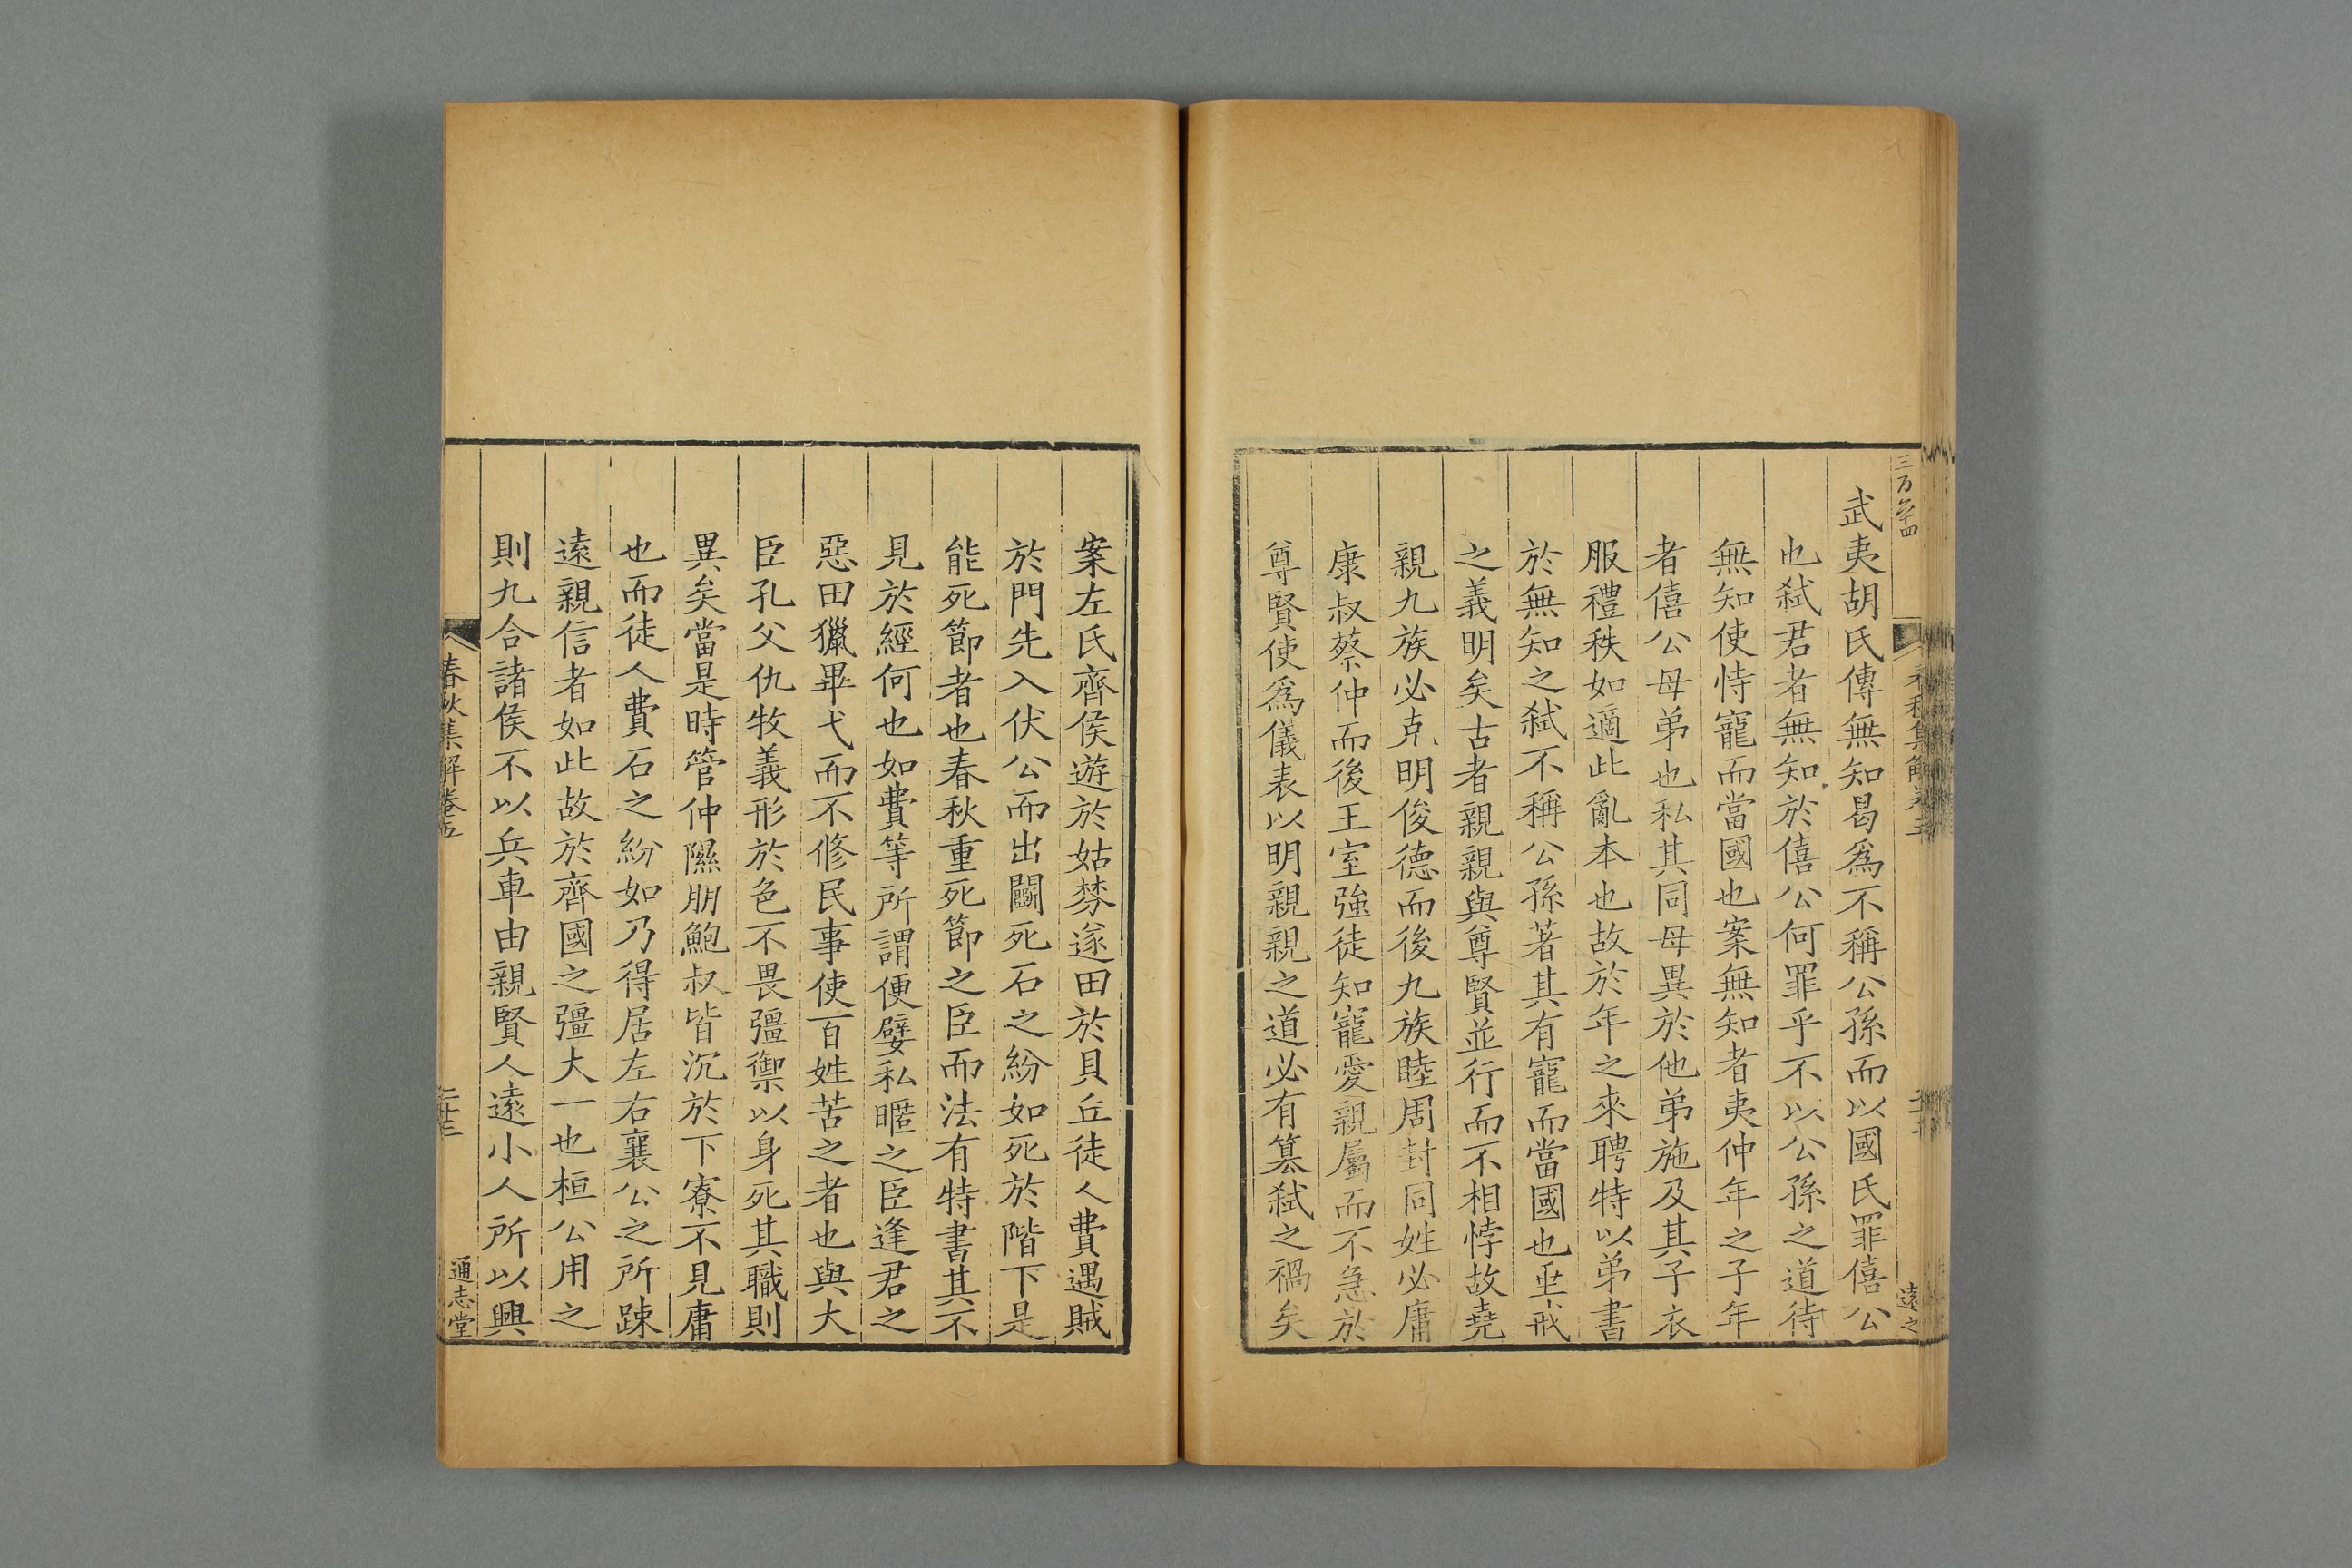 武夷胡氏傳無知曷爲不稱公孫而以國氏罪僖公
也弑君者無知於僖公何罪乎不以公孫之道待
無知使恃寵而當國也案無知者夷仲年之子年
者僖公母弟也私其同母異於他弟施及其子衣
服禮秩如適此亂本也故於年之來聘特以弟書
於無知之弑不稱公孫著其有寵而當國也垂戒
之義明矣古者親親與尊賢並行而不相悖故堯
親九族必克明俊德而後九族睦周封同姓必庸
康叔蔡仲而後王室強徒知寵愛親屬而不急於
尊賢使爲儀表以明親親之道必有篡弑之禍矣
案左氏齊侯遊於姑棼遂田於貝丘徒人費遇賊
於門先入伏公而出鬭死石之紛如死於階下是
能死節者也春秋重死節之臣而法有特書其不
見於經何也如費等所謂便嬖私暱之臣逢君之
惡田獵畢弋而不修民事使百姓苦之者也與大
臣孔父仇牧義形於色不畏彊禦以身死其職則
異矣當是時管仲隰朋鮑叔皆沉於下寮不見庸
也而徒人費石之紛如乃得居左右襄公之所踈
遠親信者如此故於齊國之彊大一也桓公用之
則九合諸侯不以兵車由親賢人遠小人所以興
春秋集解卷五
通志堂